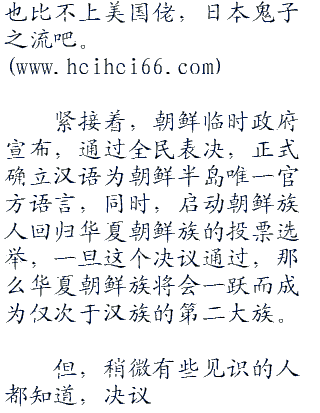 也比不上美国佬，日本鬼子
之流吧。
(www.hcihci66.com)
紧接着，朝鲜临时政府
宣布，通过全民表决，正式
确立汉语为朝鲜半岛唯一官
方语言，同时，启动朝鲜族
人回归华夏朝鲜族的投票选
举，一旦这个决议通过，那
么华夏朝鲜族将会一跃而成
为仅次于汉族的第二大族。
但，稍微有些见识的人
都知道，决议